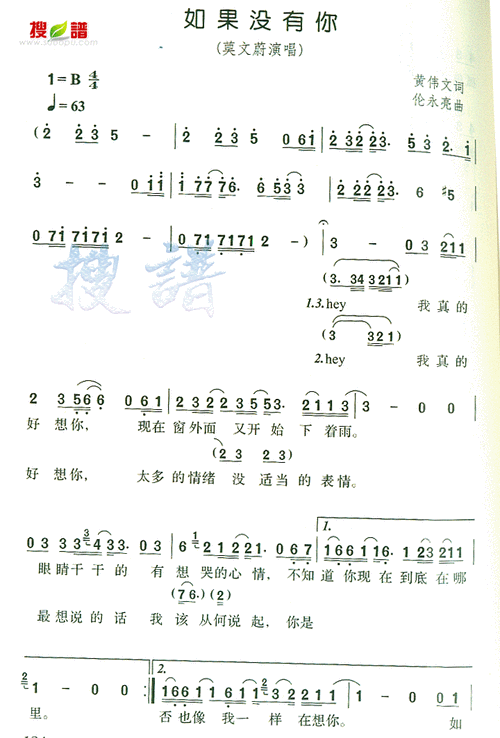 搜譜
www.sooopu.com
如果没有你
(莫文蔚演唱)
1=B 4/4
黄伟文词
♩=63
伦永亮曲
(2 2 3 5 - 2 2 3 5 0 6 1 2 3 2 2 3. 5 3 2. 1
3 - - 0 1 1 1 7 7 7 6. 6 5 3 3 2 2 2 2 3. 6 #5
0 7 1 7 1 7 1 2 - 0 7 1 7 1 7 1 2 -) 3 - 0 3 2 1 1
搜譜
(3. 3 4 3 2 1 1)
1.3.hey 我真的
(3 3 2 1)
2.hey 我真的
2 3 5 6 6 0 6 1 2 3 2 2 3 5 5 3. 2 1 1 3 3 - 0 0
好想你， 现在窗外面 又开始下着雨。
(2 3 2 3)
好想你， 太多的情绪 没适当的表情。
1.
0 3 3 3 3 4 3 3. 0 3 6 1 2 1 2 2 1. 0 6 7 1 6 6 1 1 6. 1 2 3 2 1 1
眼睛干干的 有想哭的心情，不知道你现在到底在哪
(7 6.) (2)
最想说的话 我该从何说起，你是
2.
2 1 - 0 0 :‖ 1 6 6 1 1 6 1 1 2 1 1 - 0 1
里。 否也像我一样在想你。 如